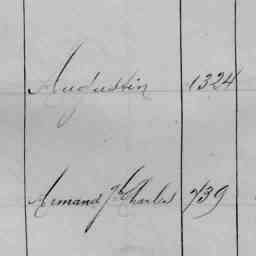 Augustin 1324
Armand Jh Charles 739